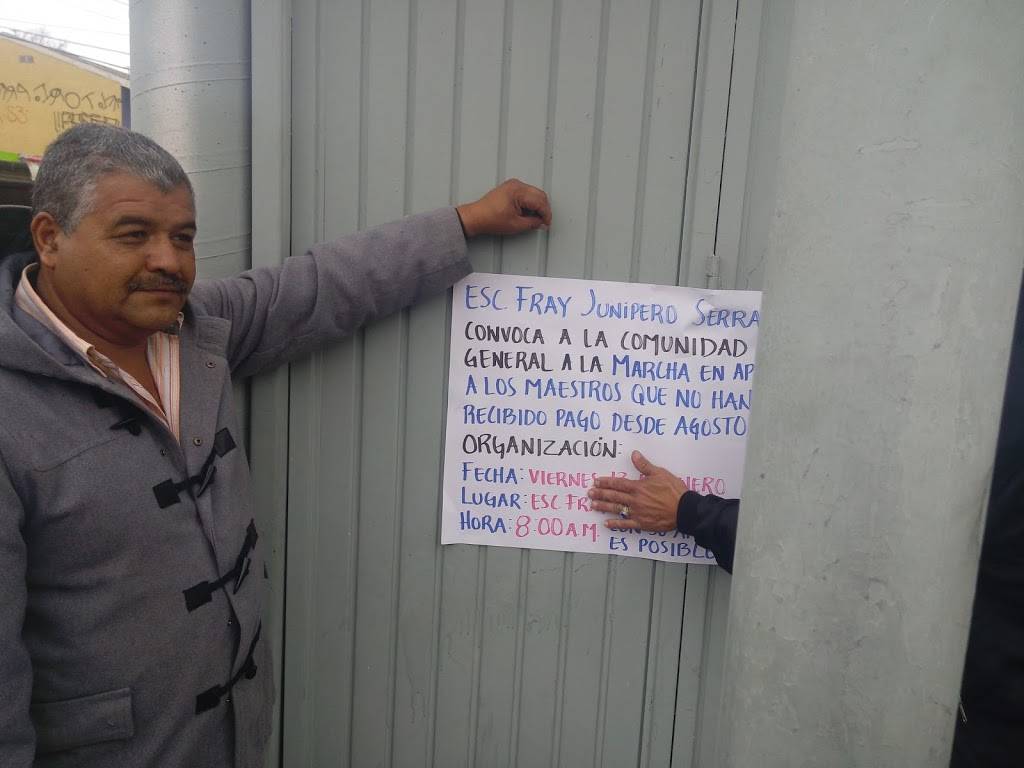 ESC. FRAY JUNÍPERO SERRA
CONVOCA A LA COMUNIDAD
GENERAL A LA MARCHA EN AP
A LOS MAESTROS QUE NO HAN
RECIBIDO PAGO DESDE AGOSTO
ORGANIZACIÓN:
FECHA: VIERNES NERO
LUGAR: ESC FRA
HORA: 8:00 A.M.
ES POSIBLE